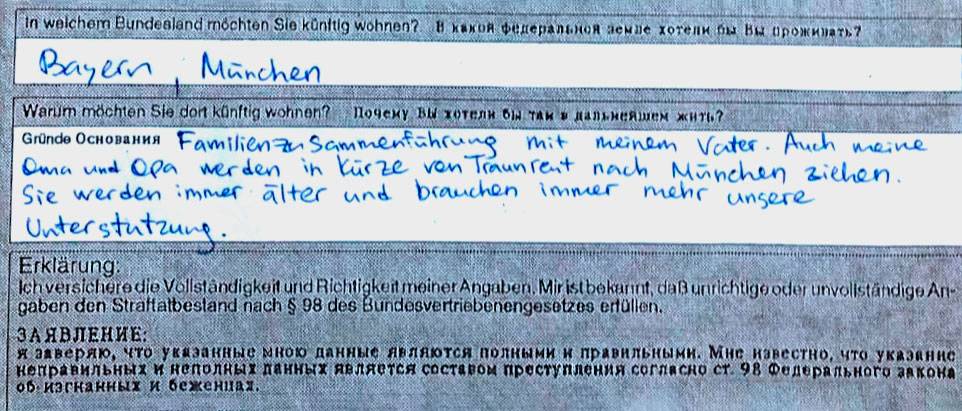 In welchem Bundesland möchten Sie künftig wohnen? В какой федеральной земле хотели бы Вы проживать?
Bayern, München
Warum möchten Sie dort künftig wohnen? Почему Вы хотели бы там в дальнейшем жить?
Gründe Основания Familienzusammenführung mit meinem Vater. Auch meine
Oma und Opa werden in Kürze von Traunreut nach München ziehen.
Sie werden immer älter und brauchen immer mehr unsere
Unterstützung.
Erklärung:
Ich versichere die Vollständigkeit und Richtigkeit meiner Angaben. Mir ist bekannt, daß unrichtige oder unvollständige An-
gaben den Straftatbestand nach § 98 des Bundesvertriebenengesetzes erfüllen.
ЗАЯВЛЕНИЕ:
я заверяю, что указанные мною данные являются полными и правильными. Мне известно, что указание
неправильных и неполных данных является составом преступления согласно ст. 98 Федерального закона
об изгнанных и беженцах.